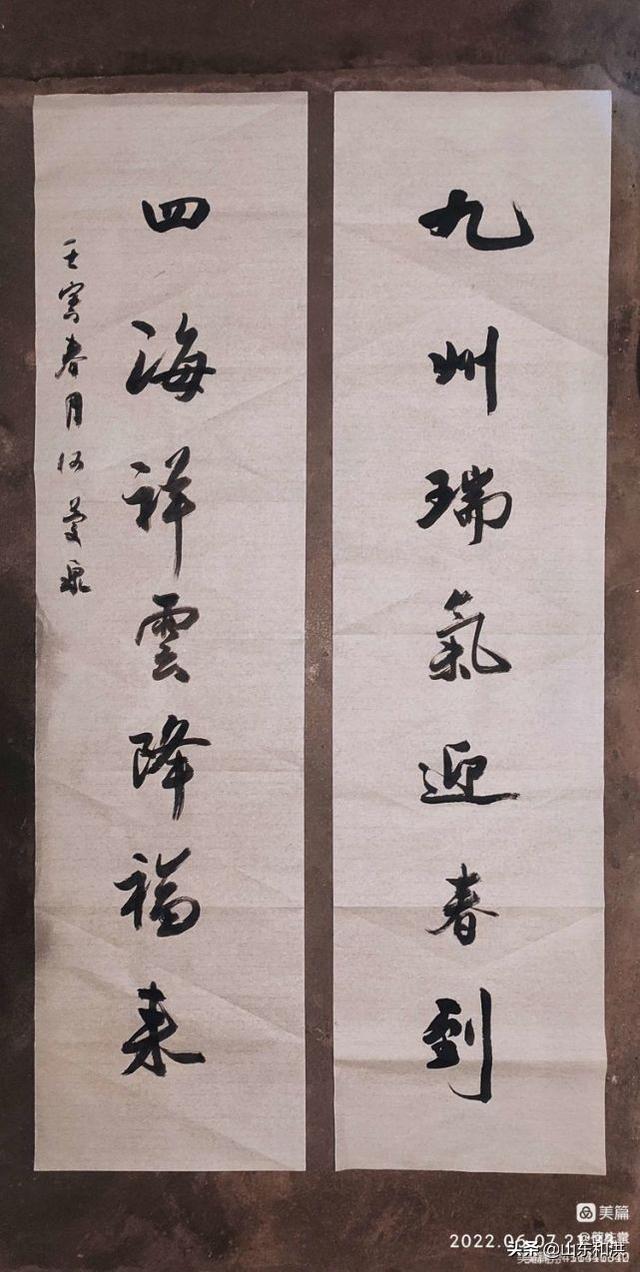 九州瑞氣迎春到
四海祥雲降福来
壬寅春月何
美篇
2022.06.07 21
头条 @山东和洪